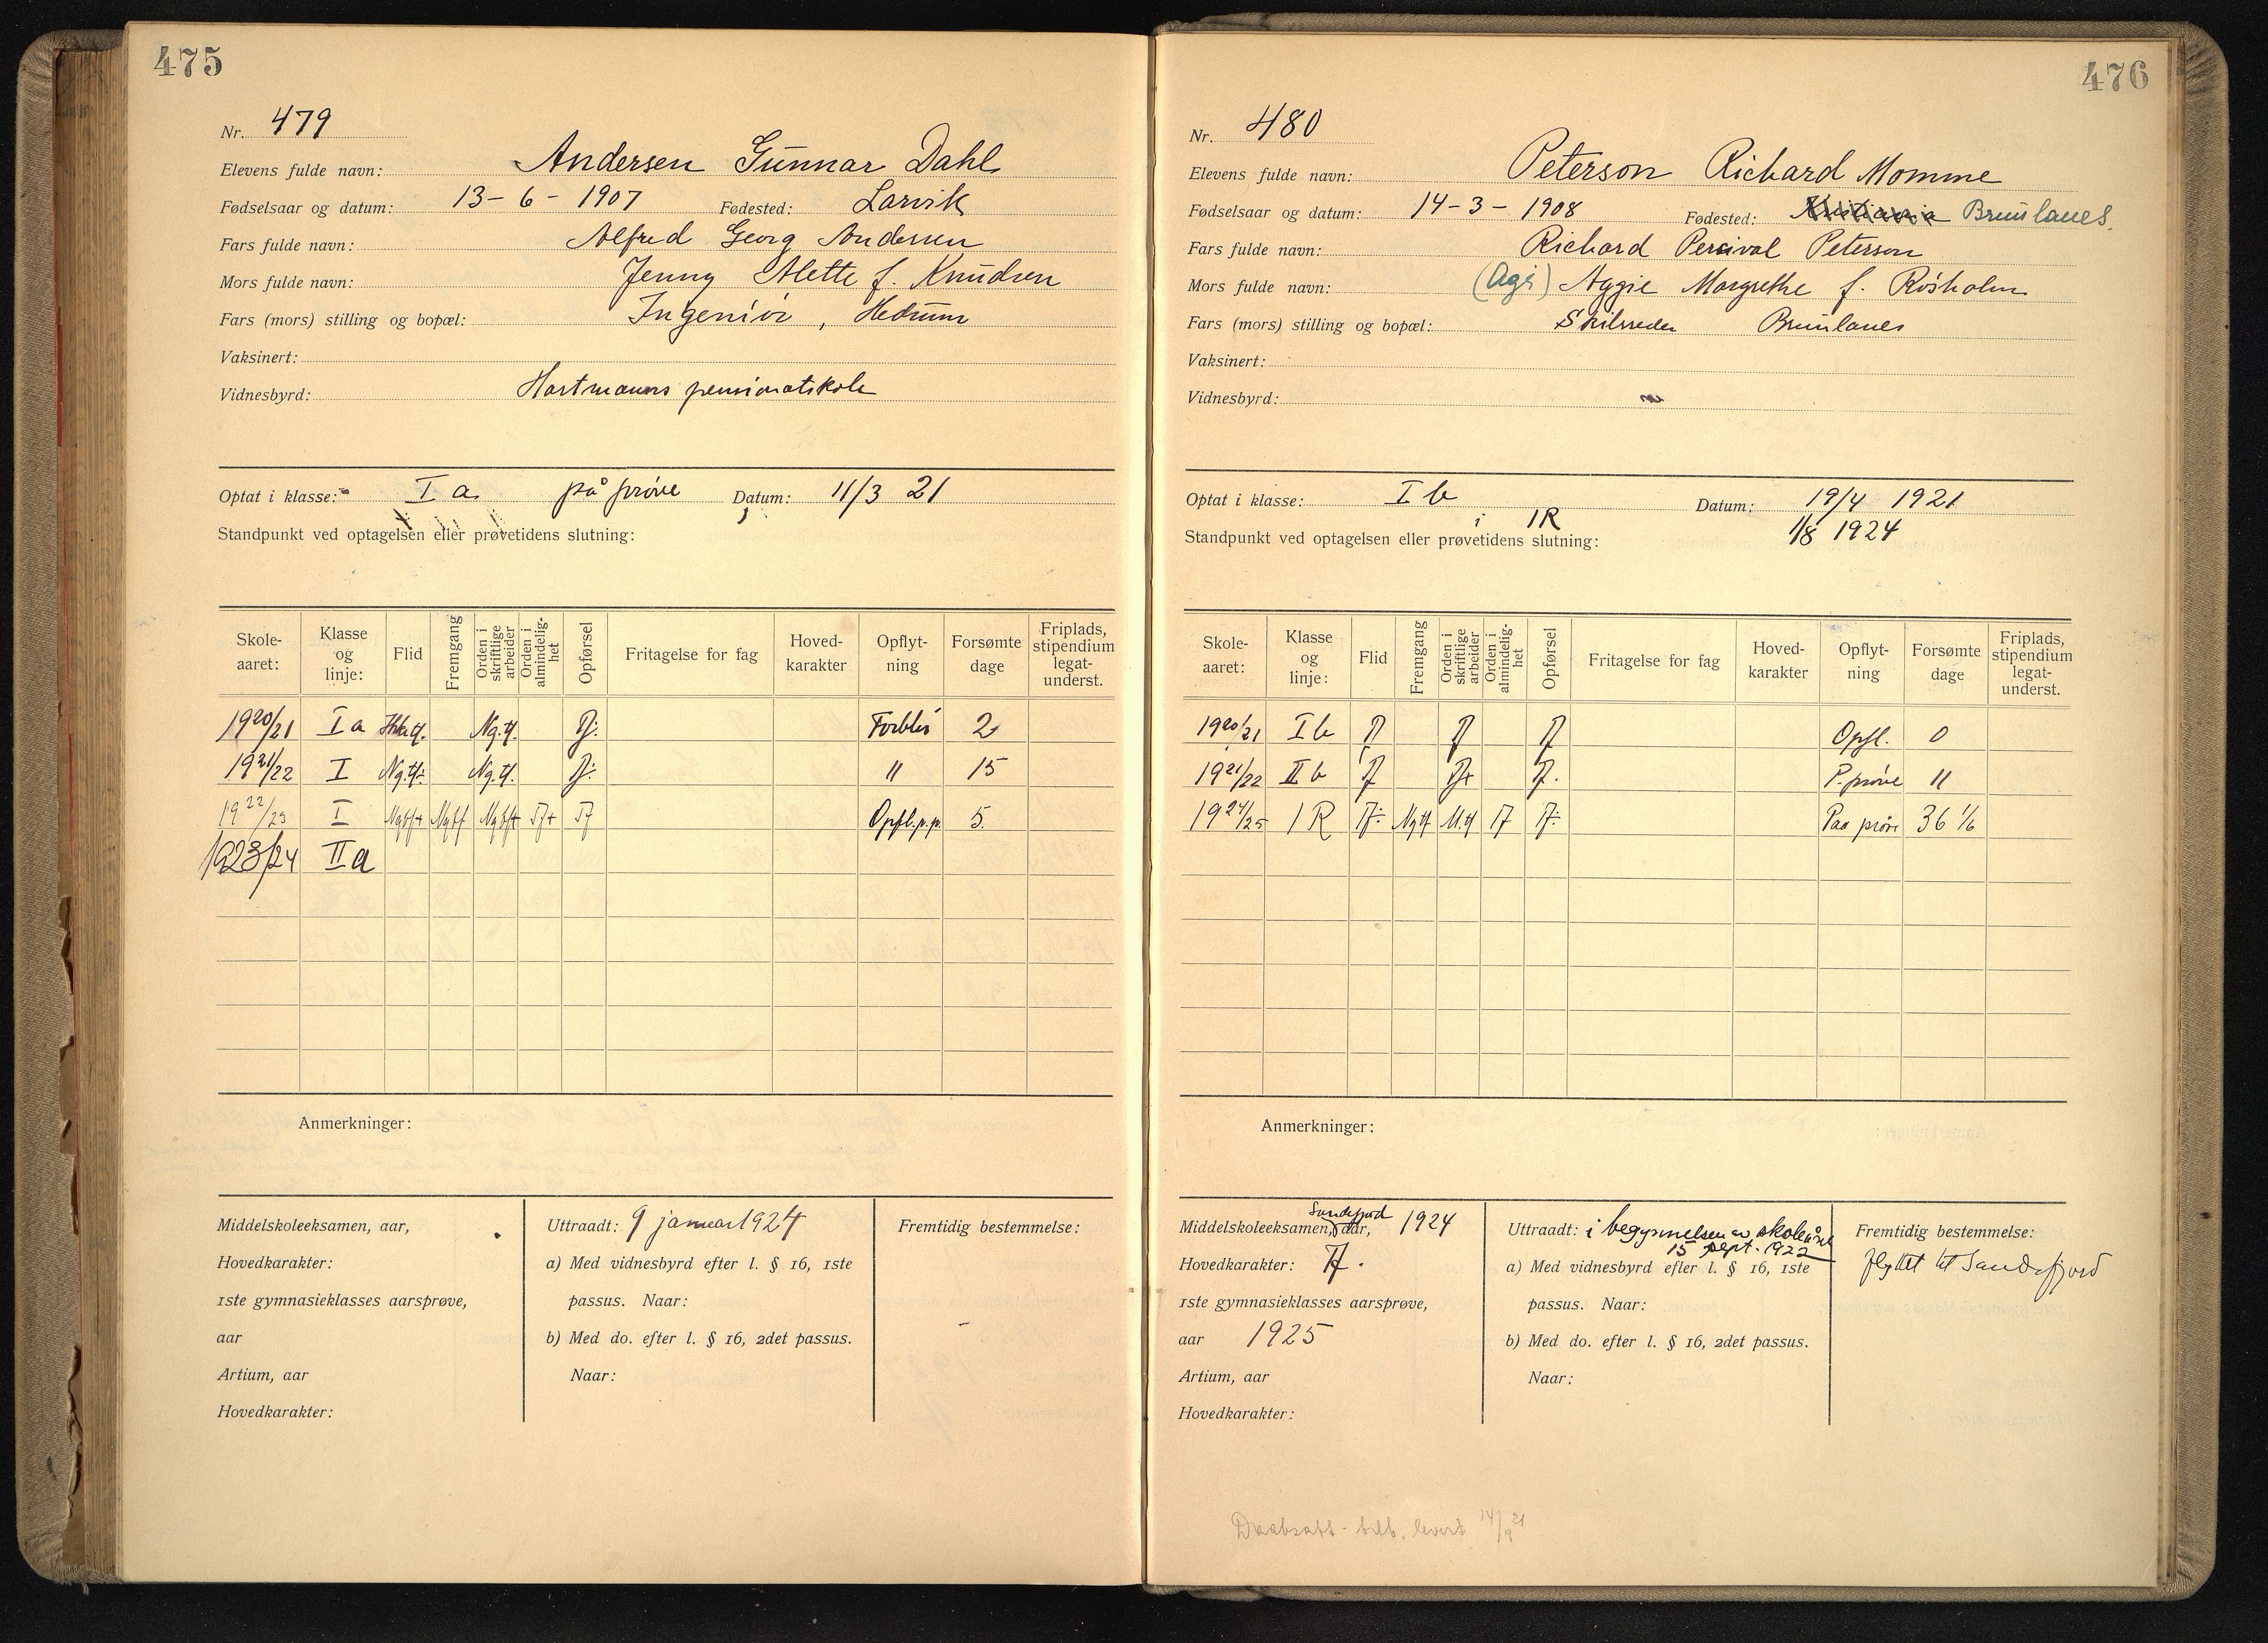 475
Nr. 479
Elevens fulde navn: Andersen Gunnar Dahl
Fødselsaar og datum: 13-6-1907 Fødested: Larvik
Fars fulde navn: Alfred Georg Andersen
Mors fulde navn: Jenny Alette f. Knudsen
Fars (mors) stilling og bopæl: Ingeniør, Hedrum
Vaksinert:
Vidnesbyrd: Hartmanns pensionatskole
Optat i klasse: I a. på prøve Datum: 11/3 21
Standpunkt ved optagelsen eller prøvetidens slutning:
Skole-aaret: Klasse og linje: Flid Fremgang Orden i skriftlige arbeider Orden i almindelig-het Opførsel Fritagelse for fag Hoved-karakter Opflyt-ning Forsømte dage Friplads, stipendium legat-underst.
1920/21 I a Ng.tf. Tf. 2
1921/22 I Ng.tf. Ng.tf. Tf. " 15
1922/23 I Ngtf+ Ngtf Ngtf+ Tf+ Tf Opfl.p.p. 5.
1923/24 II a
Anmerkninger:
Middelskoleeksamen, aar,
Hovedkarakter:
1ste gymnasieklasses aarsprøve,
aar
Artium, aar
Hovedkarakter:
Uttraadt: 9 januar 1924
a) Med vidnesbyrd efter l. § 16, 1ste
passus. Naar:
b) Med do. efter l. § 16, 2det passus.
Naar:
Fremtidig bestemmelse:
476
Nr. 480
Elevens fulde navn: Peterson Richard Momme
Fødselsaar og datum: 14-3-1908 Fødested: Kristiania Brunlanes.
Fars fulde navn: Richard Percival Peterson
Mors fulde navn: (Agi) Aggie Margrethe f. Røsholm
Fars (mors) stilling og bopæl: Skibsreder Brunlanes
Vaksinert:
Vidnesbyrd:
Optat i klasse: I b Datum: 19/4 1921
i 1R 1/8 1924
Standpunkt ved optagelsen eller prøvetidens slutning:
Skole-aaret: Klasse og linje: Flid Fremgang Orden i skriftlige arbeider Orden i almindelig-het Opførsel Fritagelse for fag Hoved-karakter Opflyt-ning Forsømte dage Friplads, stipendium legat-underst.
1920/21 I b Tf Tf Tf Opfl. 0
1921/22 II b Tf Tf+ Tf. P. prøve 11
1924/25 1 R Tf÷ Ngtf M.tf Tf Tf÷ Paa prøve 36 1/6
Anmerkninger:
Middelskoleeksamen, aar, Sandefjord 1924
Hovedkarakter: Tf.
1ste gymnasieklasses aarsprøve,
aar 1925
Artium, aar
Hovedkarakter:
Uttraadt: i begynnelsen av skoleåret
15 sept. 1922
a) Med vidnesbyrd efter l. § 16, 1ste
passus. Naar:
b) Med do. efter l. § 16, 2det passus.
Naar:
Fremtidig bestemmelse:
flyttet til Sandefjord
levert 14/9 21